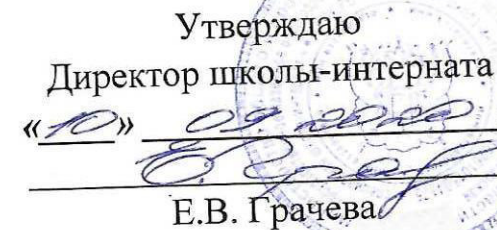 Утверждаю
Директор школы-интерната
«10» 09. 2020
Е.В. Грачева